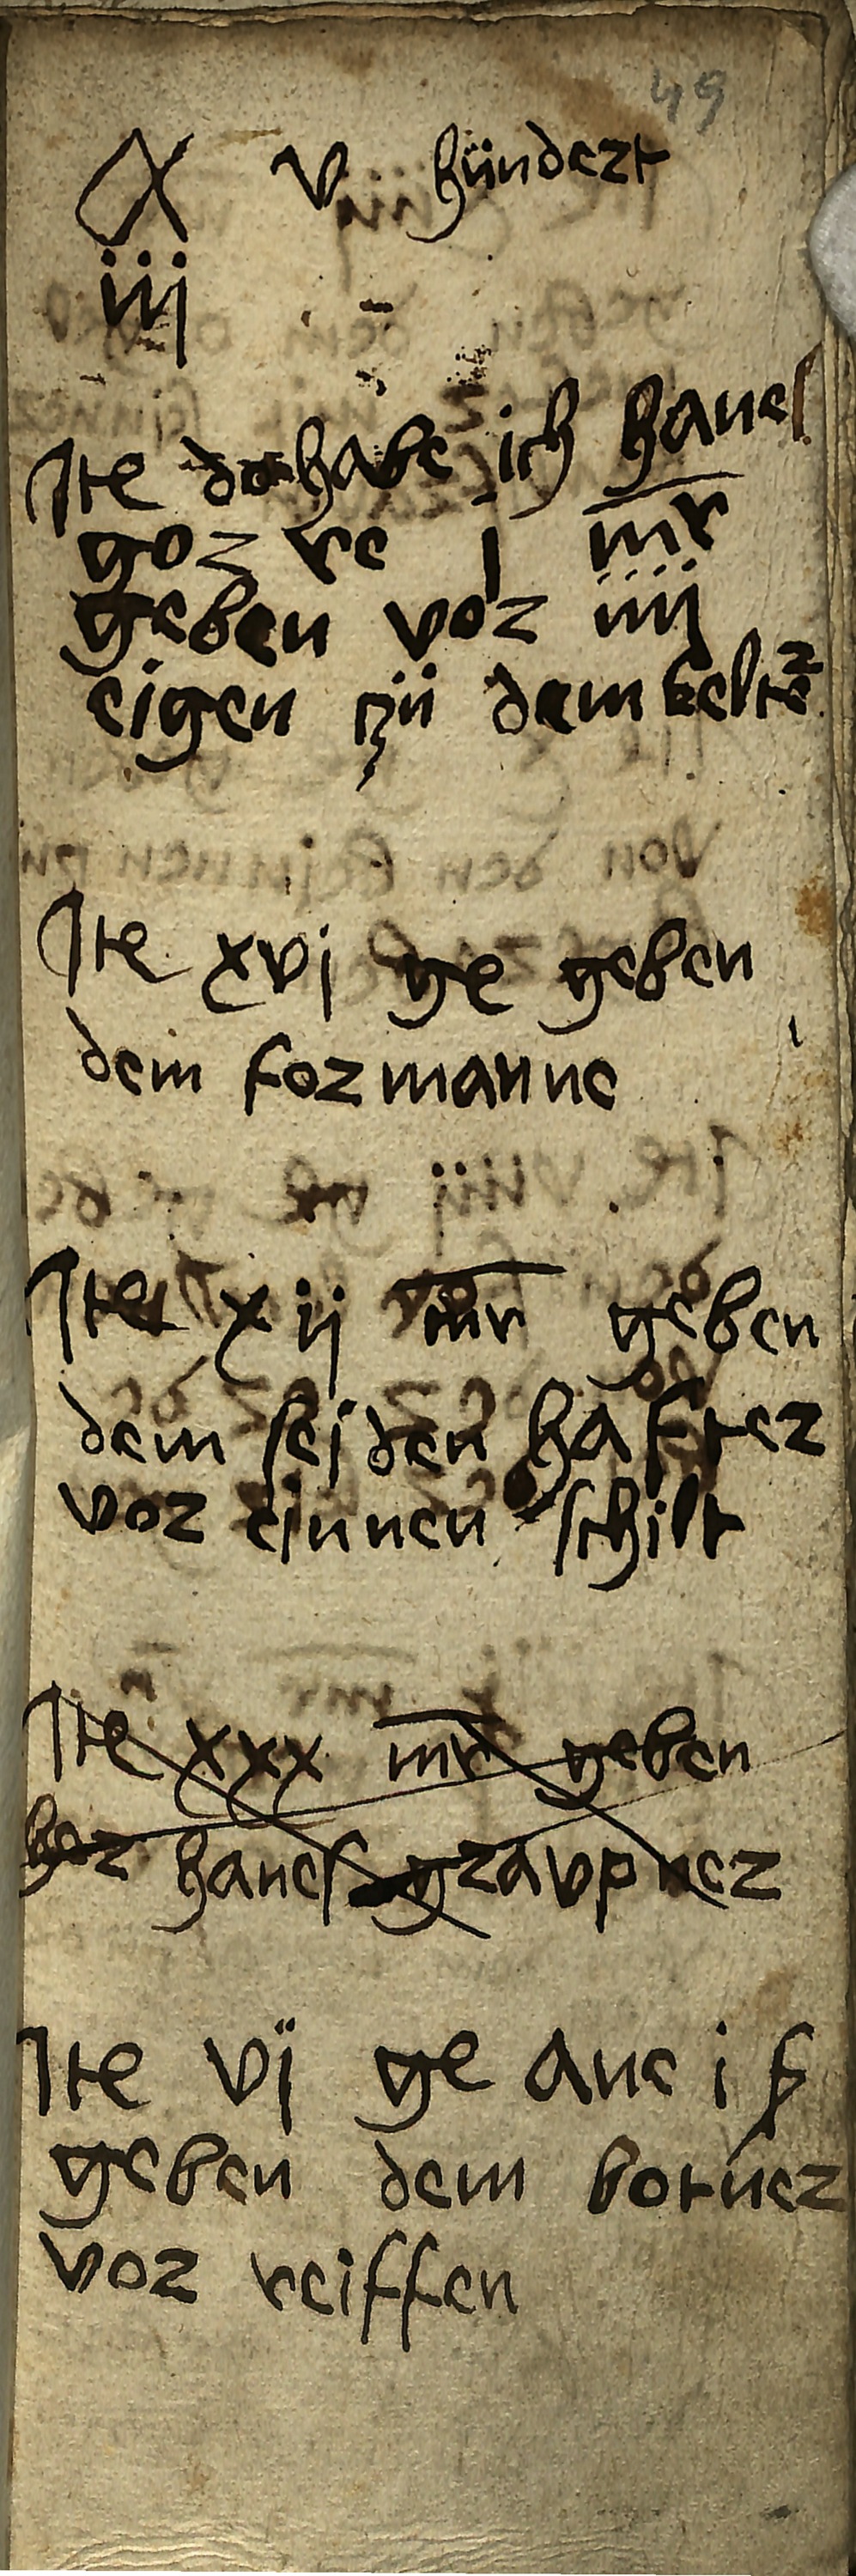 49
v hundert
iij
Ite do habe ich hanes
gor re j mr
geben vor iiij
eigen zü dem kelter
Ite xvj ge geben
dem formanne
Ite xij mr geben
dem seiden hafter
vor einnen schilt
Ite xxx mr geben
her hanes graupner
Ite vj ge ane i f
geben dem botner
vor reiffen